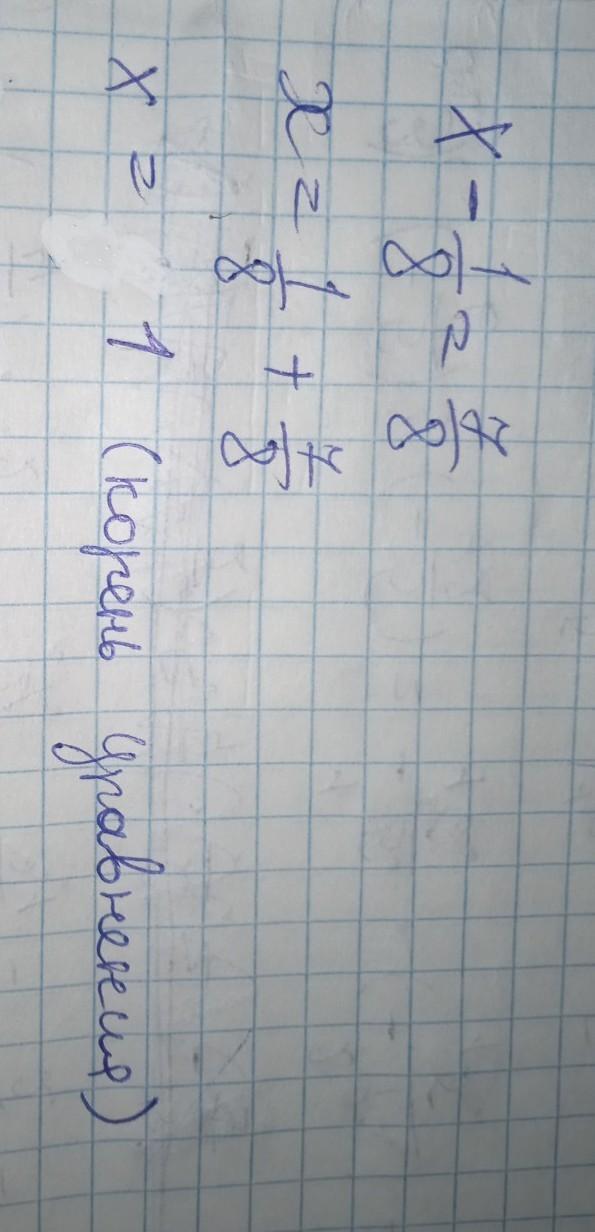 x - 1/8 = 7/8
x = 1/8 + 7/8
x = 1 (корень уравнения)